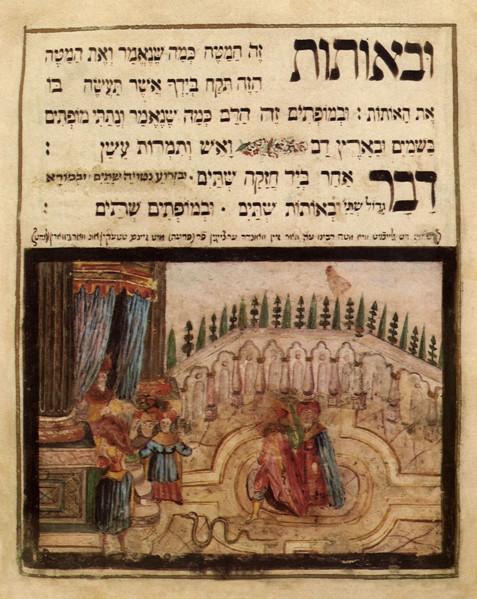 ובאותות זה המטה כמה שנאמר ואת המטה
הזה תקח בידך אשר תעשה בו
את האותות : ובמופתים זה הדם כמה שנאמר ונתתי מופתים
בשמים ובארץ דם ואש ותמרות עשן :
דבר אחר ביד חזקה שתים · ובזרוע נטויה שתים · ובמורא
גדול שתי ובאותות שתים · ובמופתים שתים :